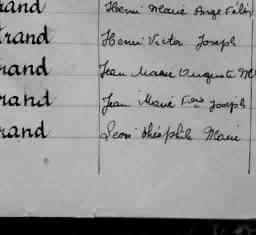 rand Henri Marie Ange Félix
rand Henri Victor Joseph
rand Jean Marie Auguste M
rand Jean Marie Fçois Joseph
rand Léon Théophile Marie